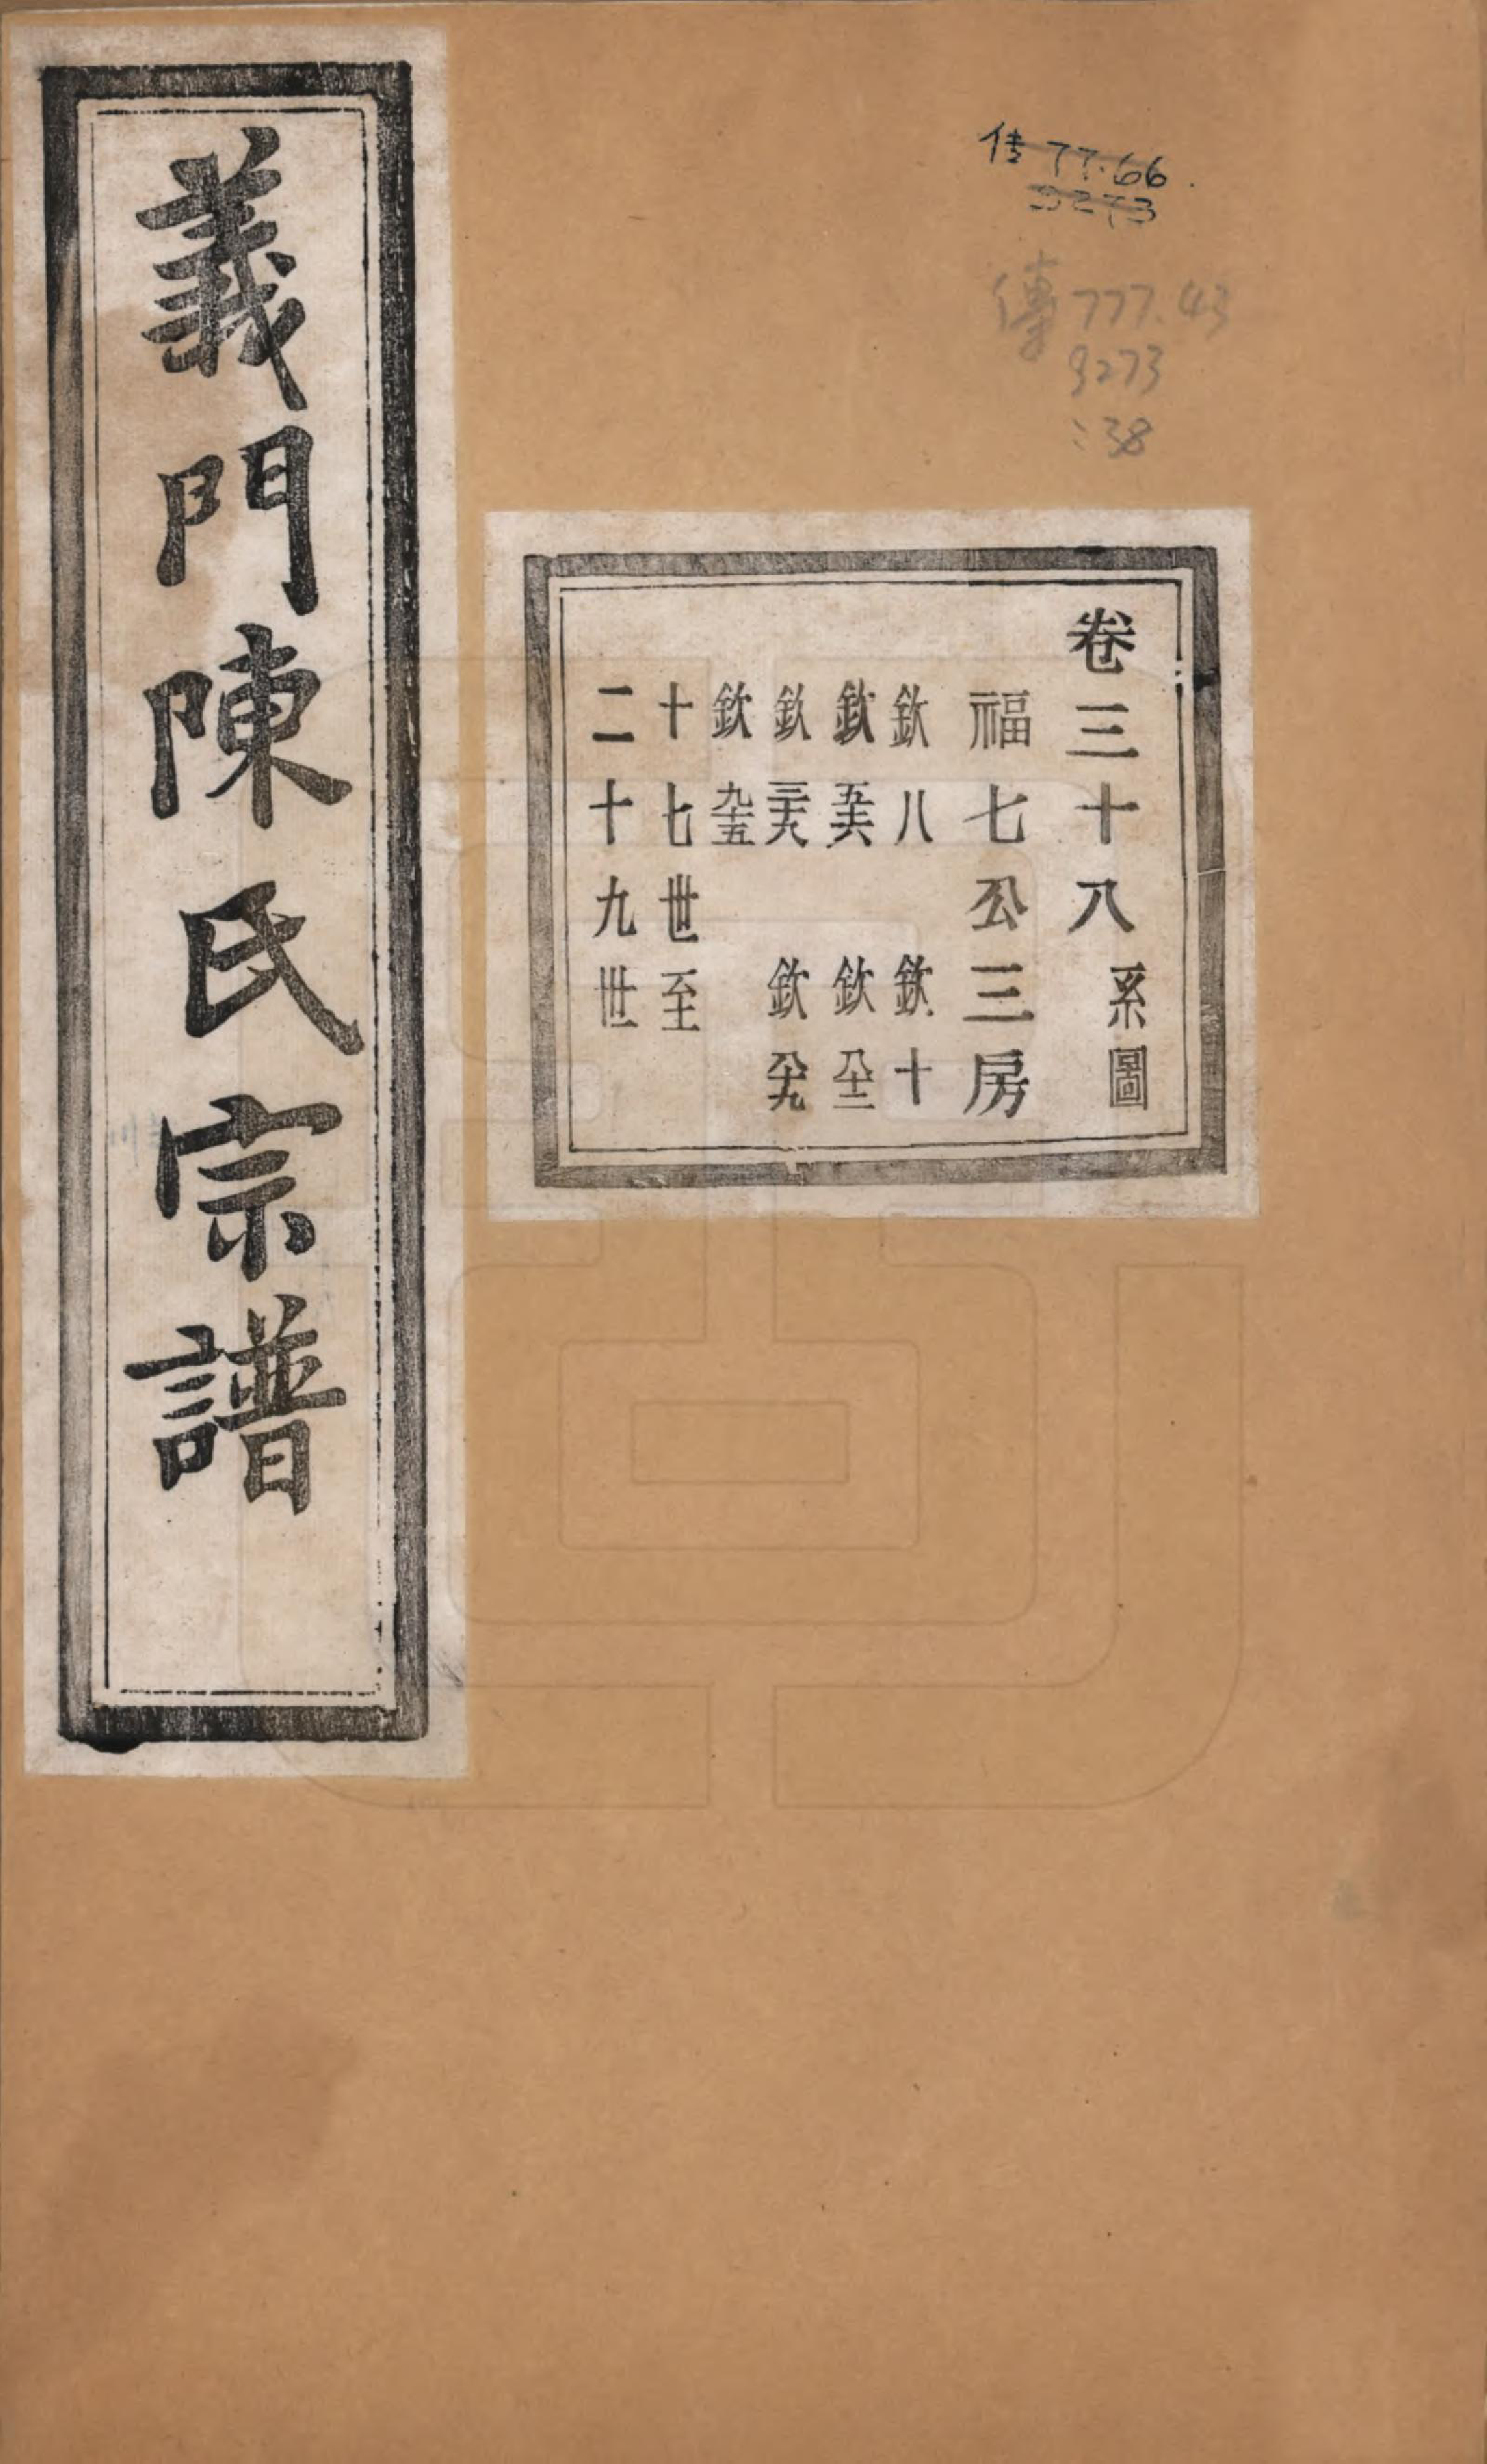 義門陳氏宗譜
传 77.66
9273
傳 777.43
9273
:38
卷三十八 系圖
福七公三房
欽八 欽十
欽五十六 欽八十二
欽三十八 欽八十九
欽九十五
十七世至
二十九世